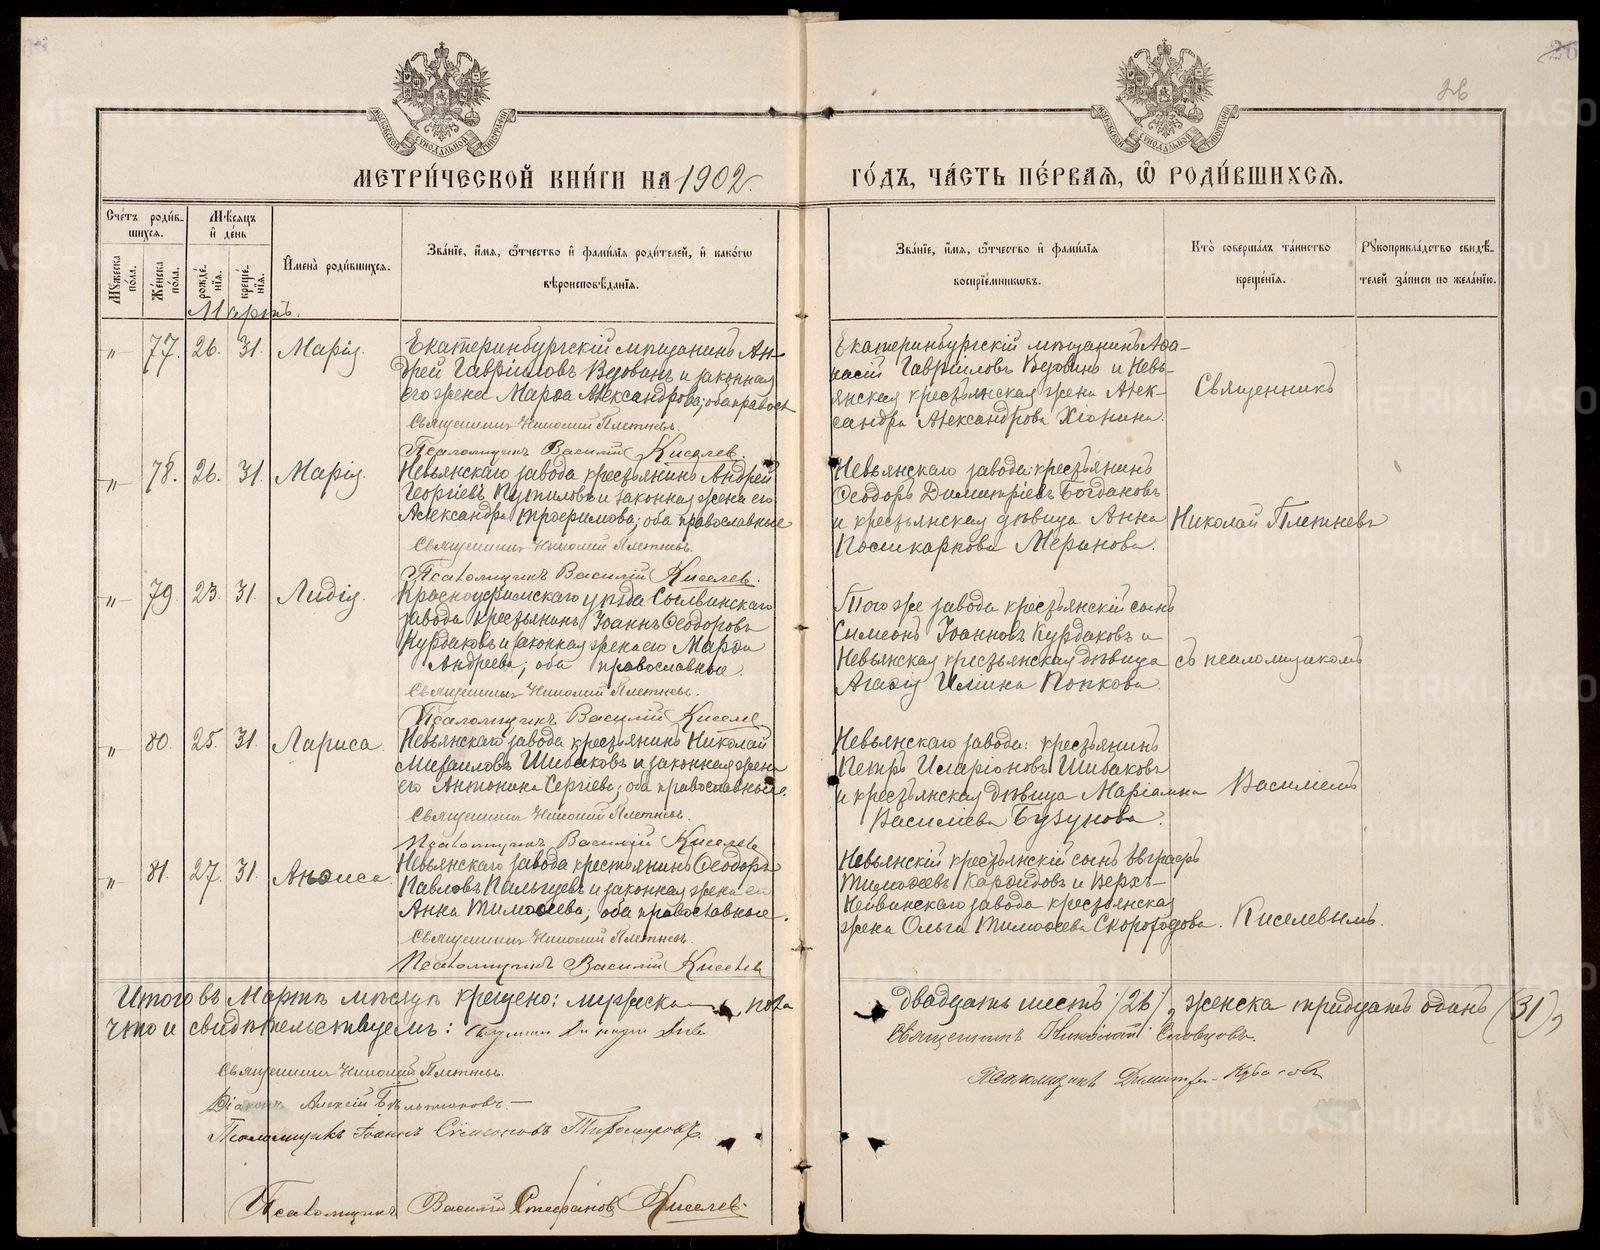 МЕТРИЧЕСКОЙ КНИГИ НА 1902
ГОДЪ, ЧАСТЬ ПЕРВАЯ, Ѡ РОДИВШИХСЯ.
Счетъ родившихся.
Мѣсяцъ и день
Мужеска пола.
Женска пола.
рожденія.
крещенія.
Имена родившихся.
Званіе, имя, отчество и фамилія родителей, и какогѡ вѣроисповѣданія.
Званіе, имя, отчество и фамилія воспріемникωвъ.
Кто совершалъ таинство крещенія.
Рукоприкладство свидѣтелей записи по желанію.
Мартъ.
„ 77. 26. 31. Марія.
Екатеринбургскій мѣщанинъ Ан-
дрей Гавріиловъ Вдовинъ и законная
его жена Марѳа Александрова; оба правосл
Священникъ Николай Плетневъ.
Псаломщикъ Василій Киселев.
Екатеринбургскій мѣщанинъ Аѳа-
насій Гавріиловъ Вдовинъ и Невь-
янская крестьянская жена Алек-
сандра Александрова Хіонина.
Священникъ
„ 78. 26. 31. Марія.
Невьянскаго завода крестьянинъ Андрей
Георгіевъ и законная жена его
Александра Трофимова; оба православные
Священникъ Николай Плетневъ.
Псаломщикъ Василій Киселев.
Невьянскаго завода: крестьянинъ
Ѳеодоръ Димитріевъ Богдановъ
и крестьянская дѣвица Анна
Поликарпова Меринова.
Николай Плетневъ
„ 79. 23. 31. Лидія.
Красноуфимскаго уѣзда Сылвинскаго
завода крестьянинъ Іоаннъ Ѳеодоровъ
Курдаковъ и законная жена его Марѳа
Андреева; оба православные.
Священникъ Николай Плетневъ.
Псаломщикъ Василій Киселев
Того же завода крестьянскій сынъ
Симеонъ Іоанновъ Курдаковъ и
Невьянская крестьянская дѣвица
Агаѳія Иліина Попкова.
съ псаломщикомъ
„ 80. 25. 31. Лариса.
Невьянскаго завода крестьянинъ Николай
Михаиловъ Шибаковъ и законная жена
его Антонина Сергіева; оба православные.
Священникъ Николай Плетневъ.
Псаломщикъ Василій Киселев
Невьянскаго завода: крестьянинъ
Петръ Иларіоновъ Шибаковъ
и крестьянская дѣвица Маріамна
Василіева Бузунова.
Василіемъ
„ 81. 27. 31. Анѳиса.
Невьянскаго завода крестьянинъ Ѳеодоръ
Павловъ Пальцевъ и законная жена его
Анна Тимоѳеева; оба православные.
Священникъ Николай Плетневъ.
Псаломщикъ Василій Киселев
Невьянскій крестьянскій сынъ Евграфъ
Тимоѳеевъ и Верхъ-
Нейвинскаго завода крестьянская
жена Ольга Тимоѳеева Скороходова.
Киселевымъ.
Итого въ Мартѣ мѣсяцѣ крещено: мужска пола
двадцать шесть (26), женска тридцать одинъ (31),
что и свидѣтельствуемъ:
Священникъ Николай Словцовъ.
Священникъ Николай Плетневъ.
Псаломщикъ Димитрій
Діаконъ Алексій
Псаломщикъ Іоаннъ Симеоновъ Тихомировъ
Псаломщикъ Василій Стефановъ Киселев.
26
METRIKI.GASO-URAL.RU